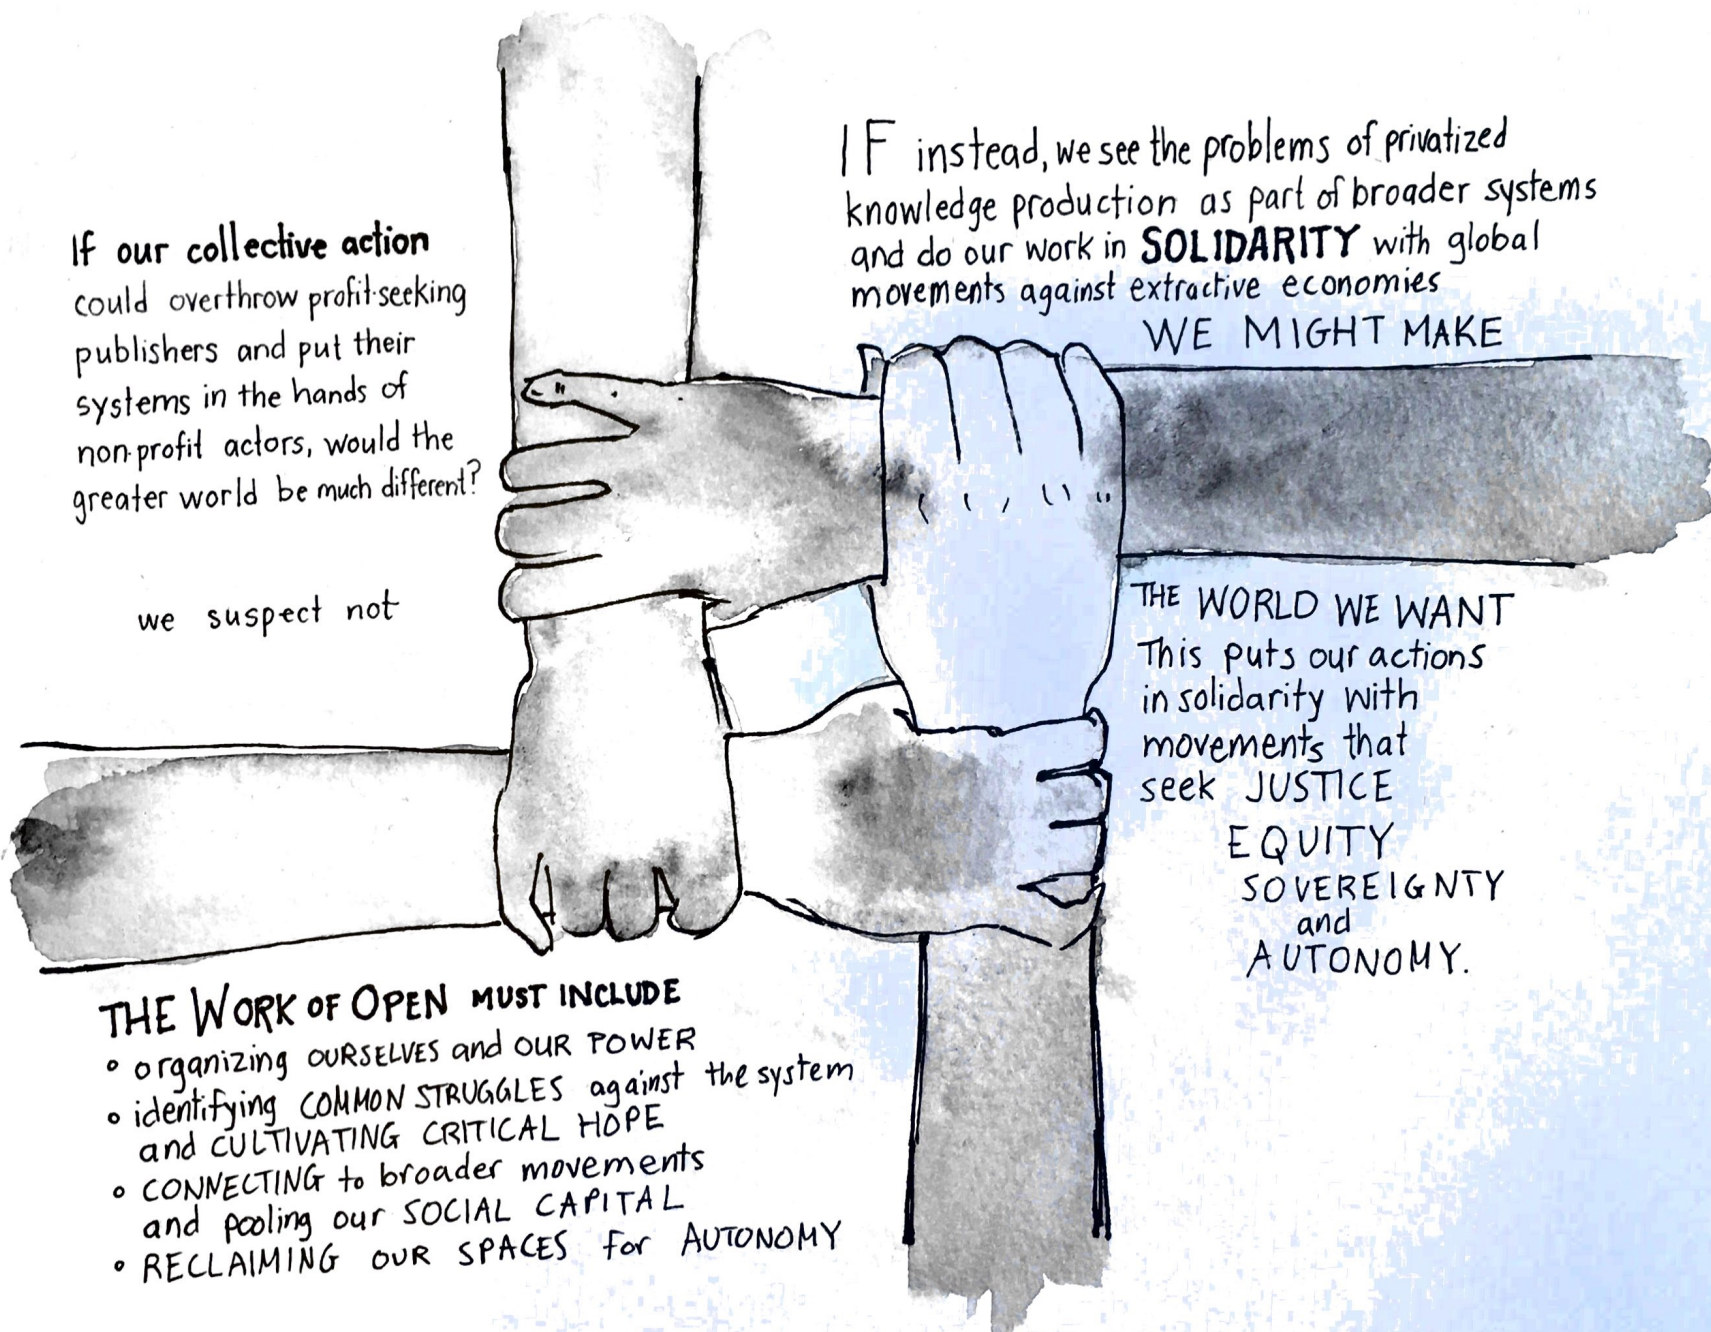 If our collective action
could overthrow profit-seeking
publishers and put their
systems in the hands of
non-profit actors, would the
greater world be much different?
we suspect not
IF instead, we see the problems of privatized
knowledge production as part of broader systems
and do our work in SOLIDARITY with global
movements against extractive economies
WE MIGHT MAKE
THE WORLD WE WANT
This puts our actions
in solidarity with
movements that
seek JUSTICE
EQUITY
SOVEREIGNTY
and
AUTONOMY.
THE WORK OF OPEN MUST INCLUDE
• organizing OURSELVES and OUR POWER
• identifying COMMON STRUGGLES against the system
and CULTIVATING CRITICAL HOPE
• CONNECTING to broader movements
and pooling our SOCIAL CAPITAL
• RECLAIMING OUR SPACES for AUTONOMY